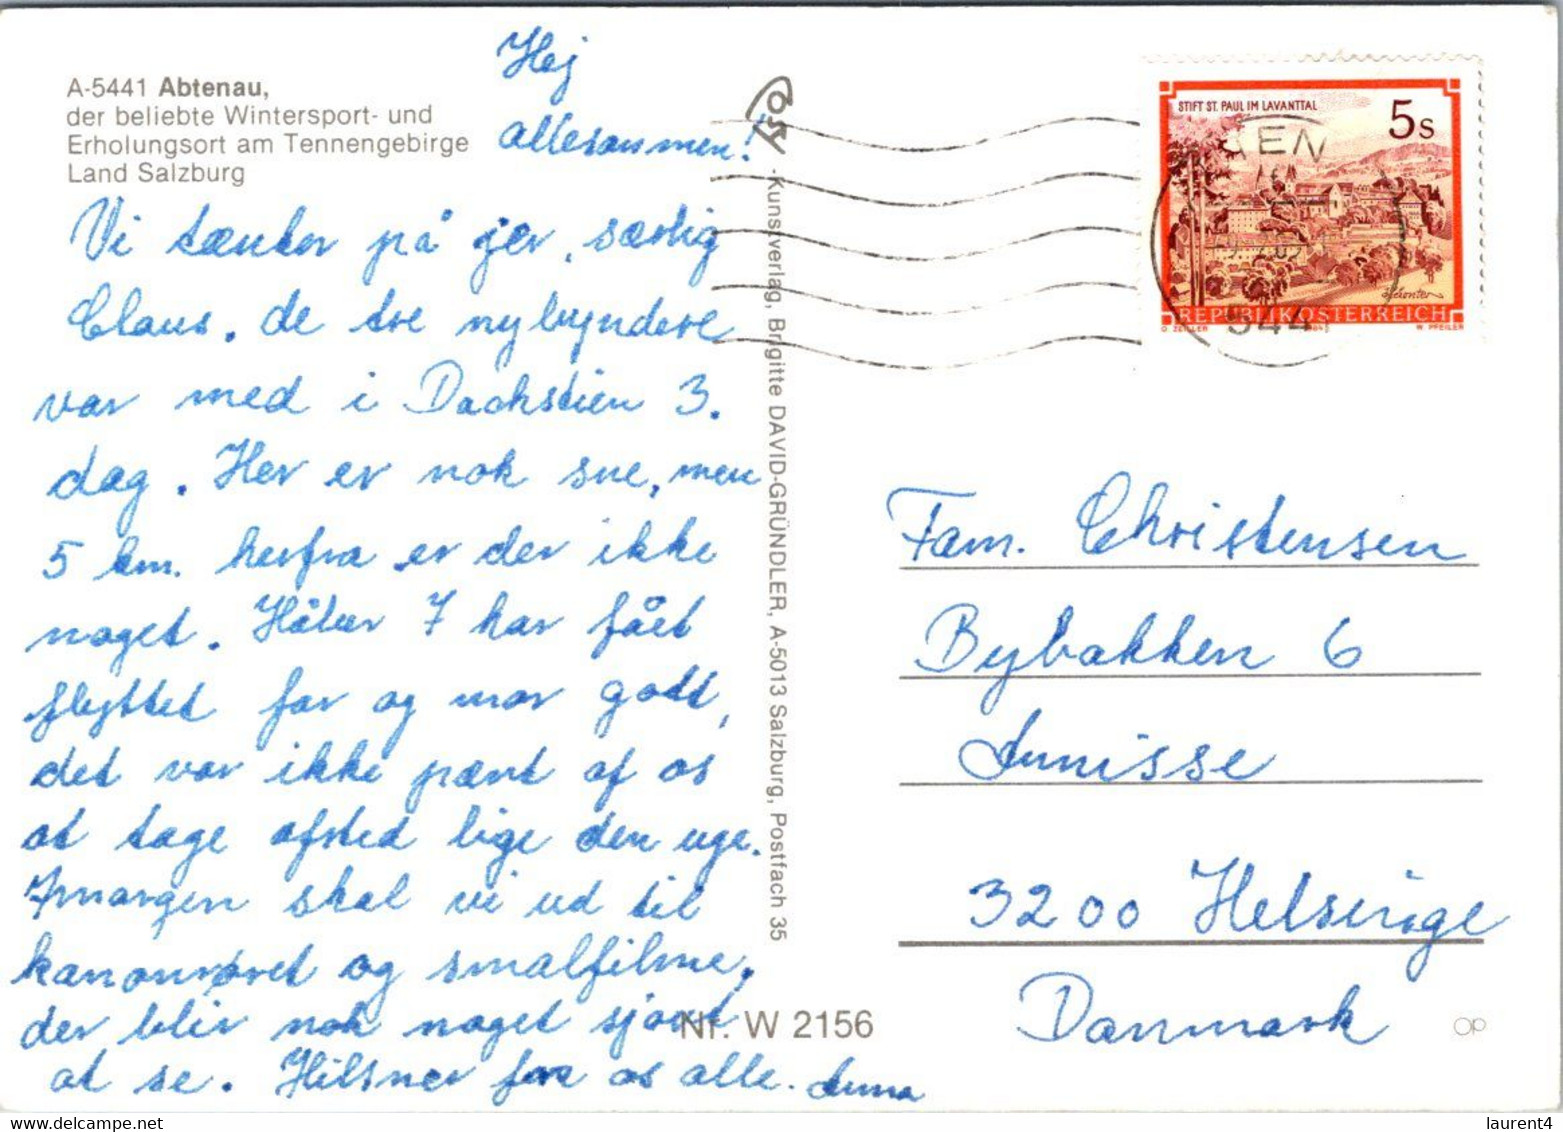 A-5441 Abtenau,
der beliebte Wintersport- und
Erholungsort am Tennengebirge
Land Salzburg
Hej
allesammen!
Vi tænker på jer, særlig
Claus. de tre nybyndere
var med i Dachstien 3.
dag. Her er nok sne, men
5 km. herfra er der ikke
noget. Håber I har fået
flyttet far og mor godt,
det var ikke pænt af os
at tage afsted lige den uge.
Imorgen skal vi ud til
kanonrøret og smalfilme,
der blir nok noget sjovt
at se. Hilsner fra os alle. Anna
Post -Kunstverlag, Brigitte DAVID-GRÜNDLER, A-5013 Salzburg, Postfach 35
Nr. W 2156
STIFT ST. PAUL IM LAVANTTAL
5s
REPUBLIK ÖSTERREICH
O. ZEILLER
W. PFEILER
544
Fam. Christensen
Bybakken 6
Annisse
3200 Helsinge
Danmark
OP
delcampe.net
laurent4